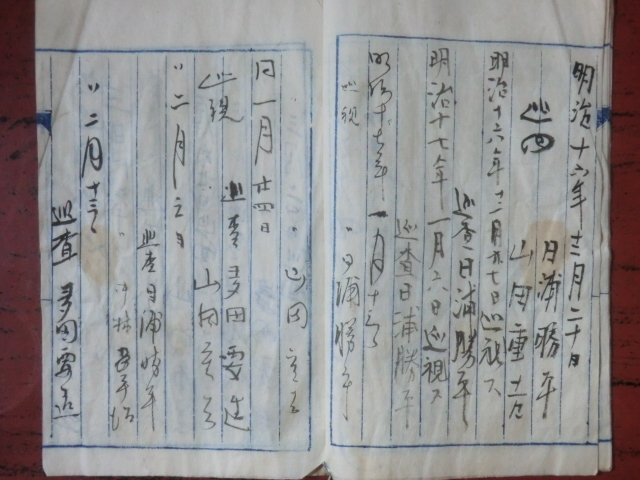 明治十六年十二月二十日
日浦勝平
巡回
山田重
明治十六年十二月廿七日巡視ス
巡査日浦勝平
明治十七年一月六日巡視ス
巡査日浦勝平
明治十七年一月十
巡視
〃日浦勝平
〃山田
同一月廿四日
巡査多田要
巡視
山田
〃二月
巡査日浦勝平
〃
〃二月十三
巡査多田要